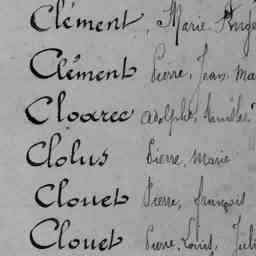 Clément, Marie
Clément Pierre, Jean, Ma
Cloarec Adolphe,
Clolus Pierre, Marie
Clouet Pierre, françois
Clouet Pierre, Louis, Juli